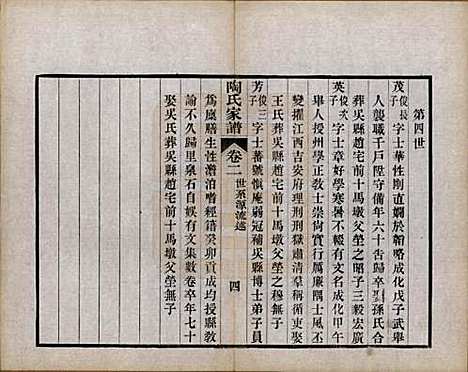 第四世
茂俊長子字士華性剛直嫺於韜略成化戊子武舉
人襲職千戶陞守備年六十告歸卒 孫氏合
葬吳縣趙宅前十馬墩父塋之昭子三宏廣
英俊次子字士章好學寒暑不輟有文名成化甲午
舉人授州學正敎士崇尚實行厲廉隅士風丕
變擢江西吉安府理刑刑獄肅清羣稱循吏娶
王氏葬吳縣趙宅前十馬墩父塋之穆無子
芳俊三子字士蕃號愼庵弱冠補吳縣博士弟子員
爲廩膳生性澹泊嗜經籍癸卯貢成均授縣敎
諭不久歸里泉石自娛有文集數卷卒年七十
娶吳氏葬吳縣趙宅前十馬墩父塋無子
陶氏家譜
卷二
世系源流述
四